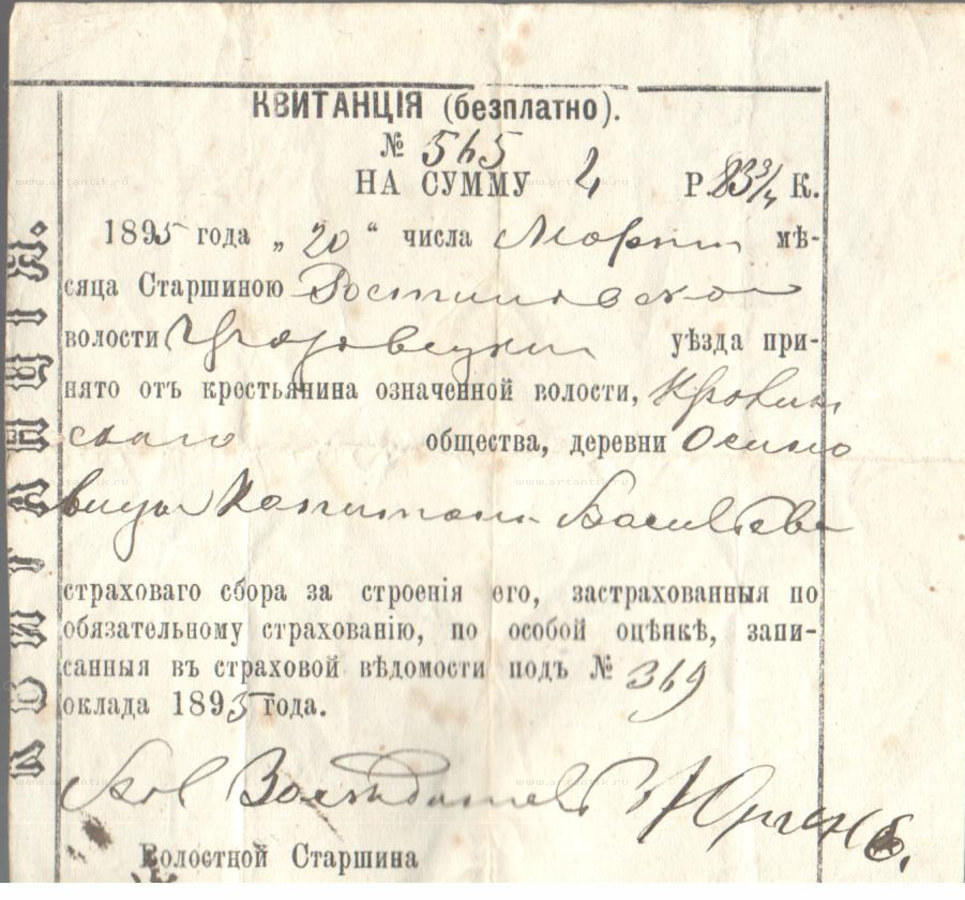 КВИТАНЦІЯ (безплатно).
№ 565
НА СУММУ 2 Р. 83 3/4 К.
1895 года „20“ числа Марта мѣ-
сяца Старшиною
волости уѣзда при-
нято отъ крестьянина означенной волости,
скаго общества, деревни Осино
вицы Капитона Васильева
страховаго сбора за строенія его, застрахованныя по
обязательному страхованію, по особой оцѣнкѣ, запи-
санныя въ страховой вѣдомости подъ № 369
оклада 1895 года.
Волостной Старшина
КВИТАНЦІЯ.